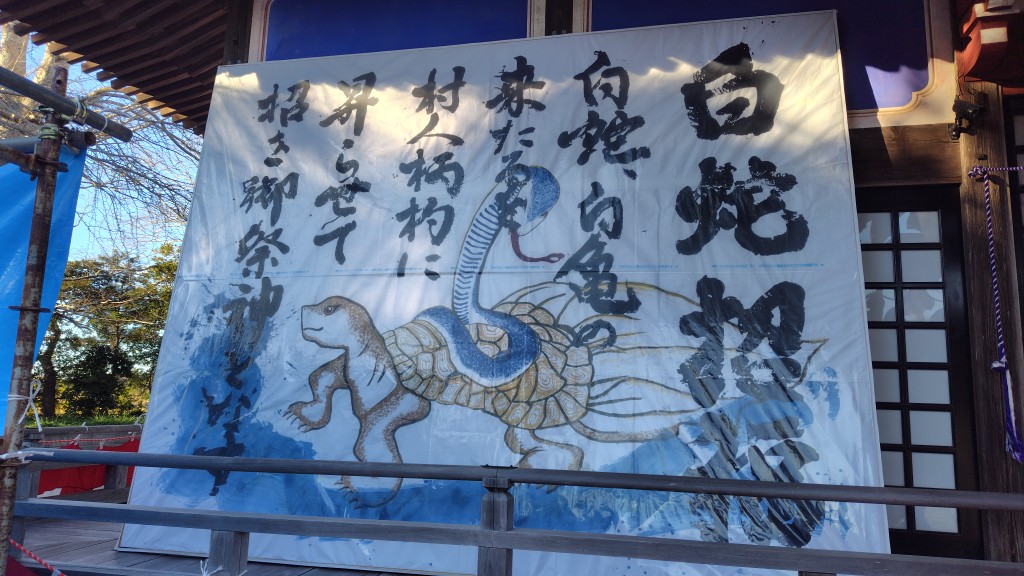 白蛇招福
白蛇、白亀の
来たるを
村人柄杓に
昇らせて
招き御祭神と